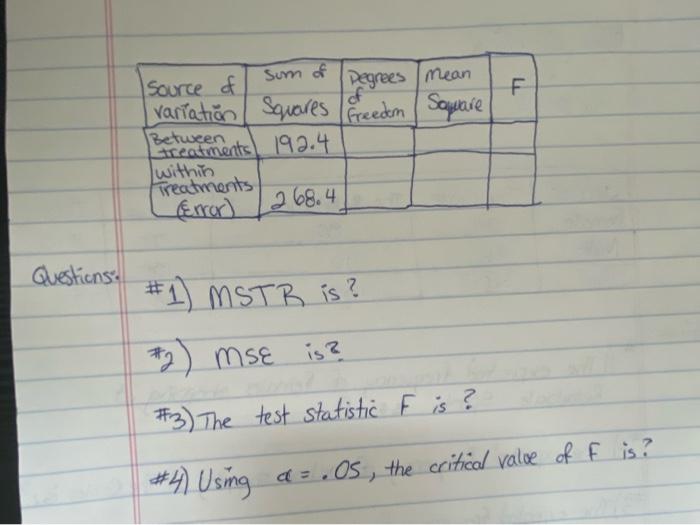 Source of variation | Sum of Squares | Degrees of Freedom | Mean Square | F
Between treatments | 192.4
within Treatments (Error) | 268.4
Questions:
#1) MSTR is?
#2) MSE is?
#3) The test statistic F is?
#4) Using α = .05, the critical value of F is?